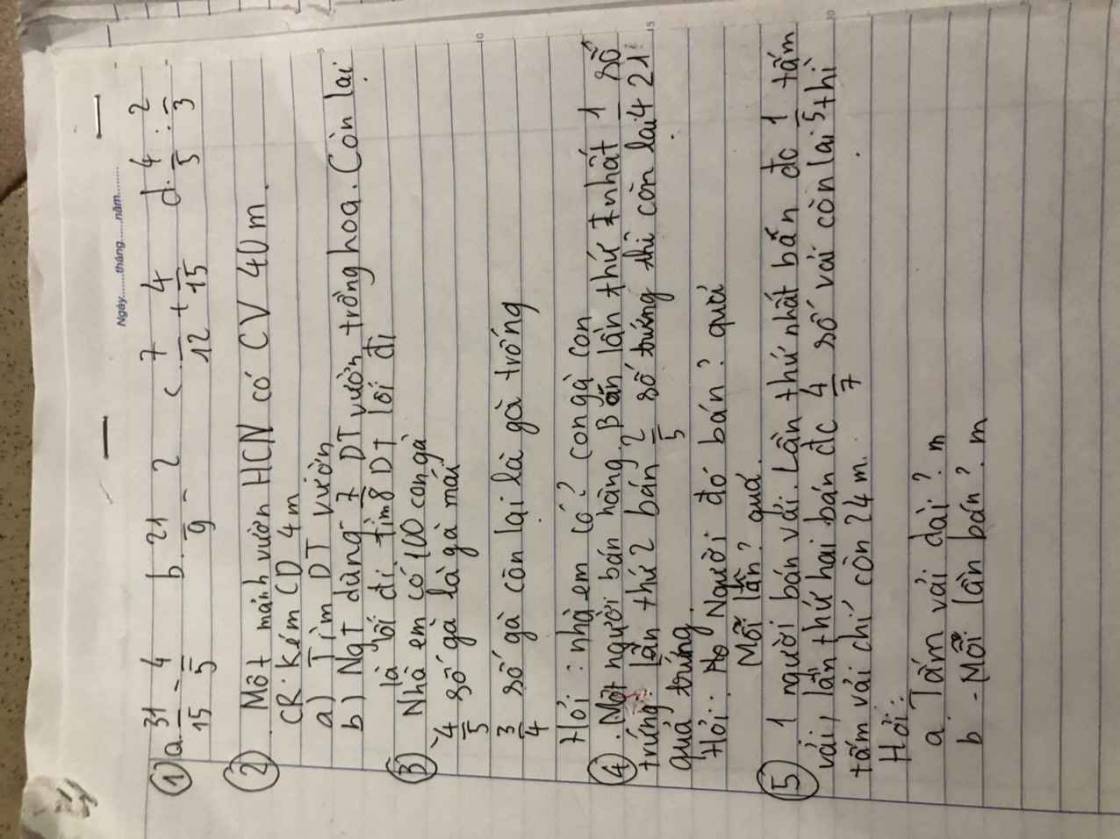 Ngày......tháng......năm........
① a. 31/15 - 4/5 b. 21/9 - 2 c. 7/12 + 4/15 d. 4/5 : 2/3
② Một mảnh vườn HCN có CV 40m.
CR kém CD 4m
a) Tìm DT vườn
b) Ngt dùng 7/8 DT vườn trồng hoa. Còn lại
là lối đi. tìm DT lối đi
③ Nhà em có 100 con gà
4/5 số gà là gà mái
3/4 số gà còn lại là gà trống
Hỏi: nhà em có? con gà con
④ Một người bán hàng. Bán lần thứ nhất 1/4 số
trứng. lần thứ 2 bán 2/5 số trứng thì còn lại 21
quả trứng.
Hỏi: Người đó bán? quả
Mỗi lần? quả.
⑤ 1 người bán vải. Lần thứ nhất bán đc 1/5 tấm
vải, lần thứ hai bán đc 4/7 số vải còn lại thì
tấm vải chỉ còn 24m.
Hỏi:
a. Tấm vải dài? m
b. - Mỗi lần bán? m